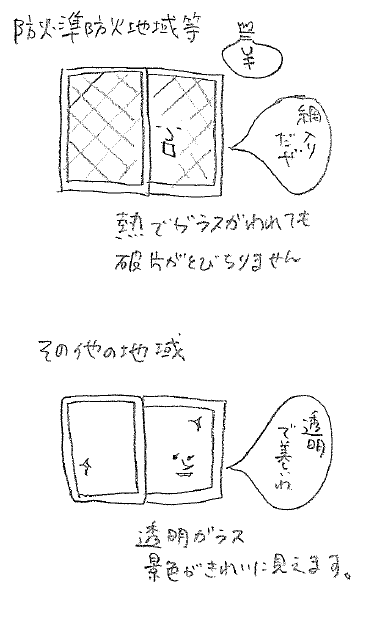 防火・準防火地域等
網入り
だぜ。
熱でガラスがわれても
破片がとびちりません
その他の地域
透明
で美しいわ
透明ガラス
景色がきれいに見えます。